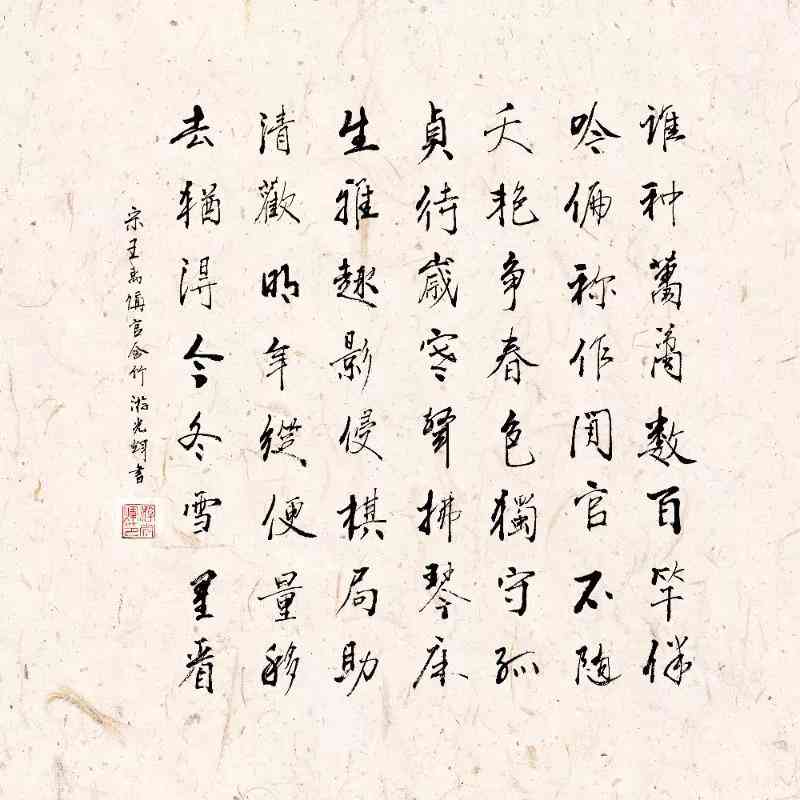 谁种蕭蕭数百竿伴
吟偏称作閑官不随
夭艳争春色獨守孤
貞待歲寒聲拂琴床
生雅趣影侵棋局助
清歡明年縱便量移
去猶得今冬雪里看
宋王禹偁官舍竹 游光書